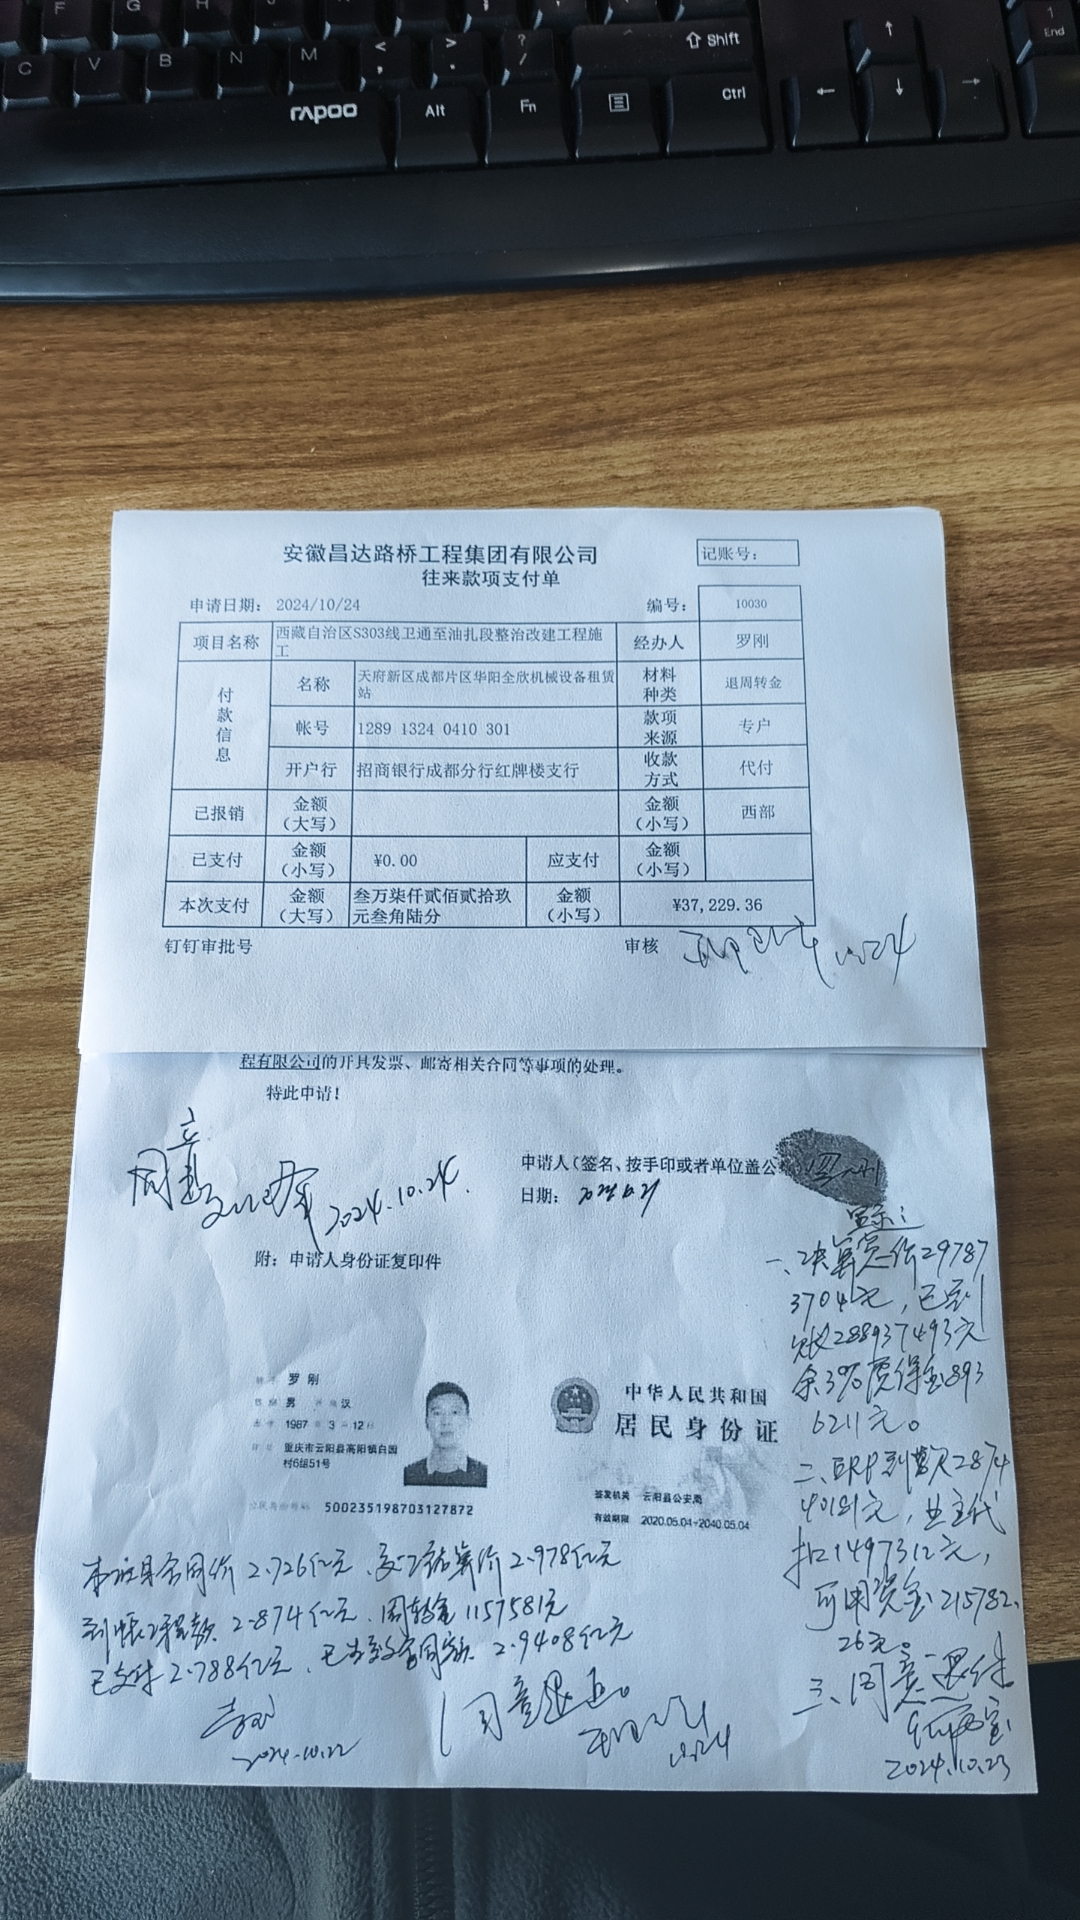 F G H J
C V B N M < , > . ? / ⇧ Shift ↑ 1 End
rapoo Alt Fn Ctrl ← ↓ →
安徽昌达路桥工程集团有限公司
往来款项支付单
记账号：
申请日期： 2024/10/24 编号： 10030
项目名称 西藏自治区S303线卫通至油扎段整治改建工程施工 经办人 罗刚
付款信息 名称 天府新区成都片区华阳全欣机械设备租赁站 材料种类 退周转金
帐号 1289 1324 0410 301 款项来源 专户
开户行 招商银行成都分行红牌楼支行 收款方式 代付
已报销 金额（大写） 金额（小写） 西部
已支付 金额（小写） ¥0.00 应支付 金额（小写）
本次支付 金额（大写） 叁万柒仟贰佰贰拾玖元叁角陆分 金额（小写） ¥37,229.36
钉钉审批号 审核 10.24
程有限公司的开具发票、邮寄相关合同等事项的处理。
特此申请！
同意 2024.10.24.
申请人（签名、按手印或者单位盖公 罗刚
日期：
附：申请人身份证复印件
一、决算定价29787
3704元，已到
账288937493元
余3%质保金893
6211元。
二、ERP到款2874
40181元，业主代
扣1497312元，
可用资金215782.
26元。
三、同意退还
2024.10.23
姓名 罗刚
性别 男 民族 汉
出生 1987 年 3 月 12 日
住址 重庆市云阳县高阳镇白园
村6组51号
公民身份号码 500235198703127872
中华人民共和国
居民身份证
签发机关 云阳县公安局
有效期限 2020.05.04-2040.05.04
本项目合同价 2.726亿元、交工结算价 2.978亿元
到账工程款 2.874亿元、周转金1157581元
已支付 2.788亿元、已签约合同款 2.9408亿元
2024.10.22
同意退还。
10.24